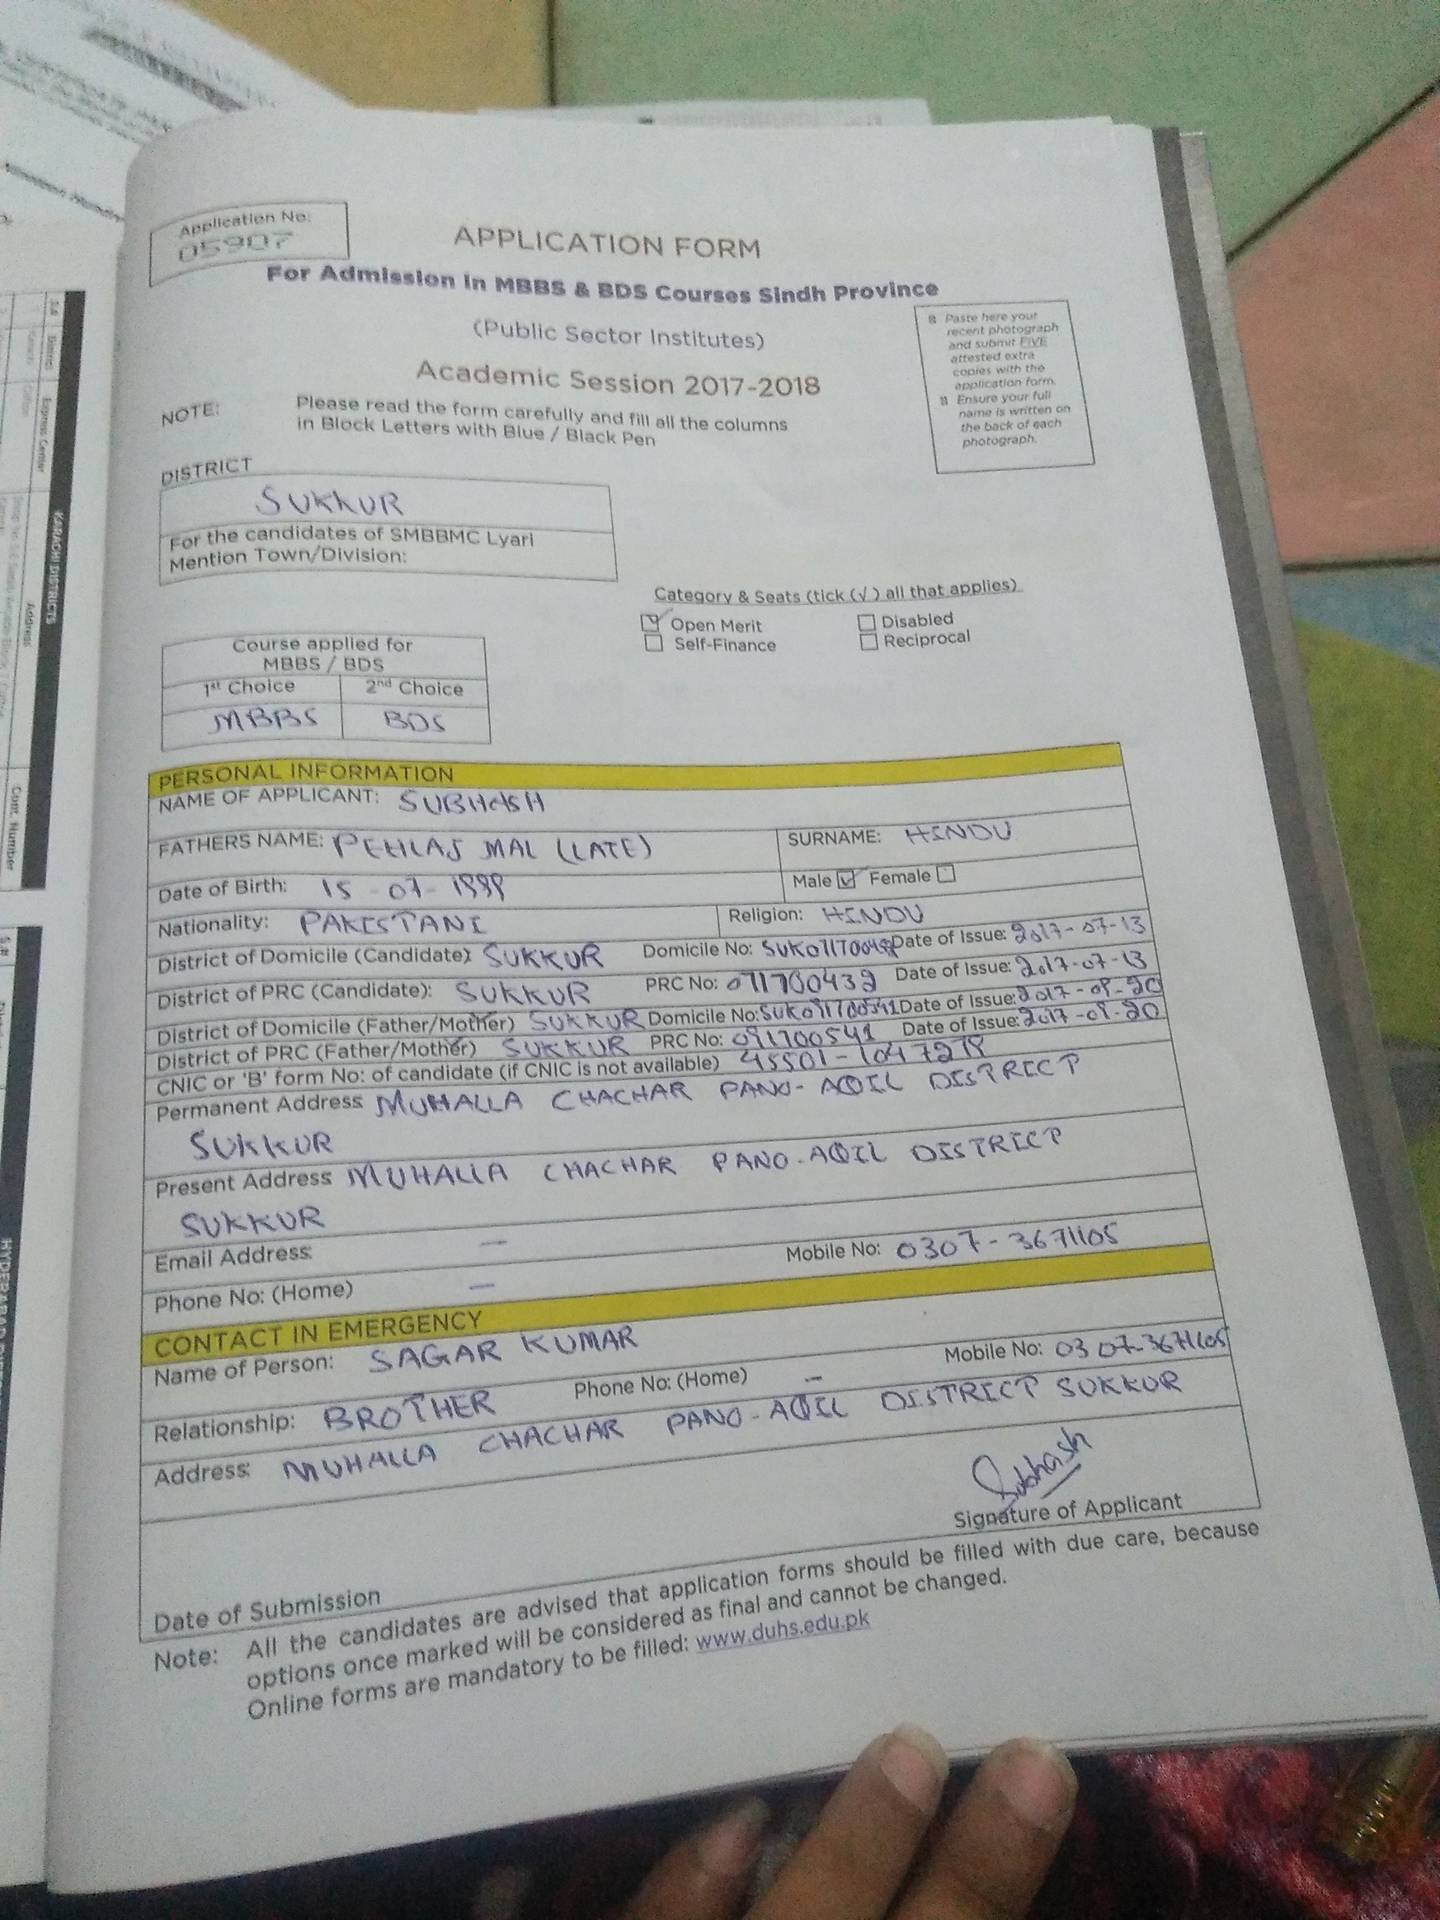 Application No:
05907
APPLICATION FORM
For Admission In MBBS & BDS Courses Sindh Province
(Public Sector Institutes)
Academic Session 2017-2018
Paste here your
recent photograph
and submit FIVE
attested extra
copies with the
application form.
Ensure your full
name is written on
the back of each
photograph.
NOTE: Please read the form carefully and fill all the columns
in Block Letters with Blue / Black Pen
DISTRICT
SUKKUR
For the candidates of SMBBMC Lyari
Mention Town/Division:
Category & Seats (tick (√) all that applies)
Open Merit Disabled
Self-Finance Reciprocal
Course applied for
MBBS / BDS
1st Choice 2nd Choice
MBBS BDS
PERSONAL INFORMATION
NAME OF APPLICANT: SUBHASH
FATHERS NAME: PEHLAJ MAL (LATE) SURNAME: HINDU
Date of Birth: 15-07-1999 Male Female
Nationality: PAKISTANI Religion: HINDU
District of Domicile (Candidate): SUKKUR Domicile No: Date of Issue: 2017-07-13
District of PRC (Candidate): SUKKUR PRC No: 071700432 Date of Issue: 2017-07-13
District of Domicile (Father/Mother) SUKKUR Domicile No: SUK091700541 Date of Issue: 2017-09-20
District of PRC (Father/Mother) SUKKUR PRC No: 091700541 Date of Issue: 2017-09-20
CNIC or 'B' form No: of candidate (if CNIC is not available)
Permanent Address MUHALLA CHACHAR PANO-AQIL DISTRICT
SUKKUR
Present Address MUHALLA CHACHAR PANO-AQIL DISTRICT
SUKKUR
Email Address: —
Mobile No: 0307-3671105
Phone No: (Home) —
CONTACT IN EMERGENCY
Name of Person: SAGAR KUMAR Mobile No: 0307-3671105
Relationship: BROTHER Phone No: (Home) —
Address: MUHALLA CHACHAR PANO-AQIL DISTRICT SUKKUR
Subhash
Signature of Applicant
Date of Submission
Note: All the candidates are advised that application forms should be filled with due care, because
options once marked will be considered as final and cannot be changed.
Online forms are mandatory to be filled: www.duhs.edu.pk
KARACHI DISTRICTS
S.# District Express Center Address Cont. Number